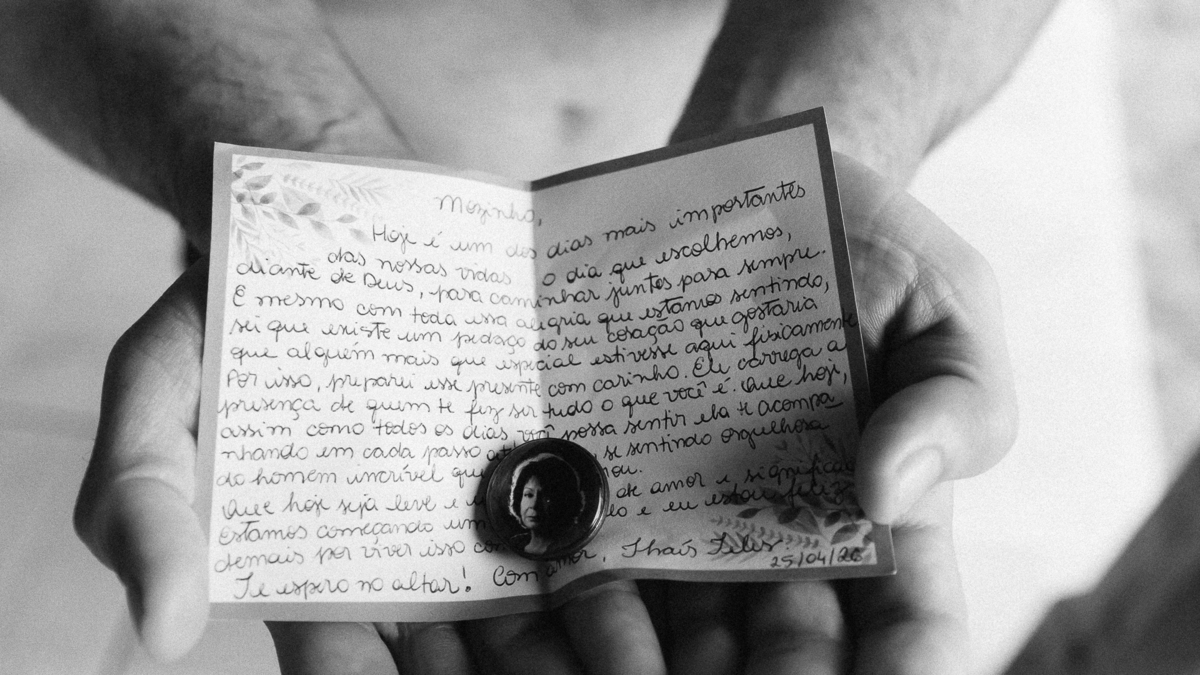 Mozinho,
Hoje é um dos dias mais importantes
das nossas vidas o dia que escolhemos,
diante de Deus, para caminhar juntos para sempre.
E mesmo com toda essa alegria que estamos sentindo,
sei que existe um pedaço do seu coração que gostaria
que alguém mais que especial estivesse aqui fisicamente
Por isso, preparei esse presente com carinho. Ele carrega a
presença de quem te fez ser tudo o que você é. Que hoje,
assim como todos os dias você possa sentir ela te acompa_
nhando em cada passo se sentindo orgulhosa
do homem incrível que
Que hoje seja leve e de amor e significado
estamos começando um e eu estou feliz
demais por viver isso
Te espero no altar! Com amor, Thaís Teles
25/04/26